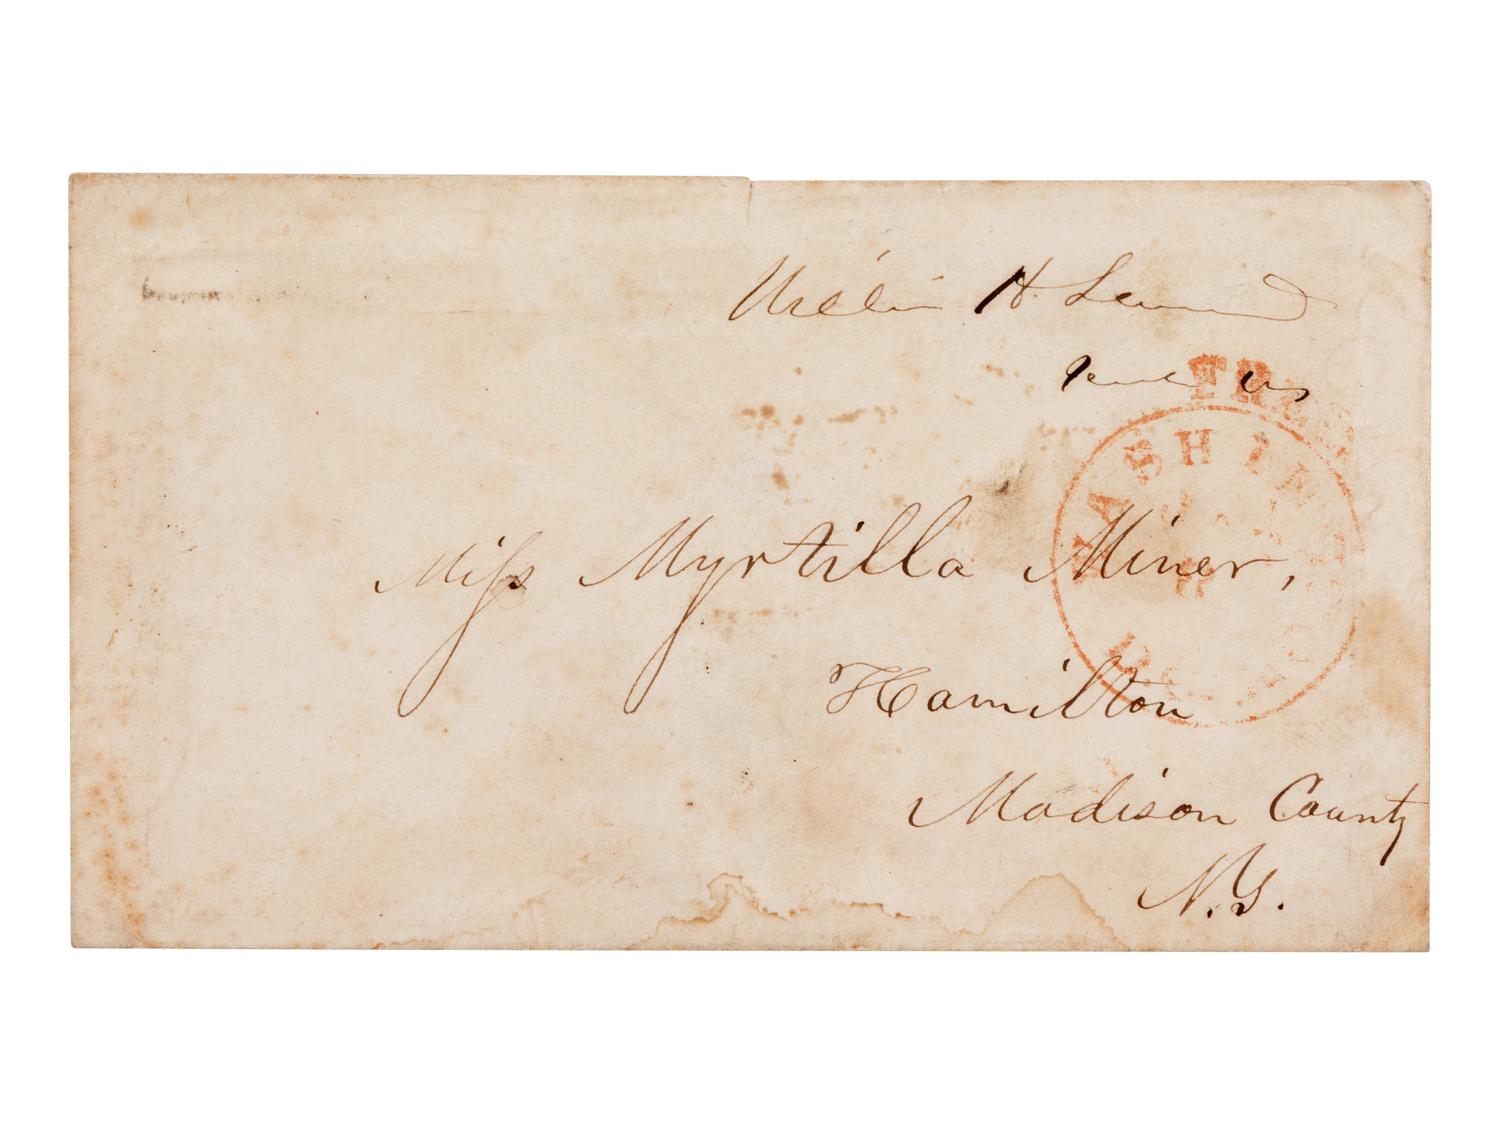 William H. Seward
US
FREE
WASHINGTON
JAN
D.C.
Miss Myrtilla Miner,
Hamilton
Madison County
N.Y.